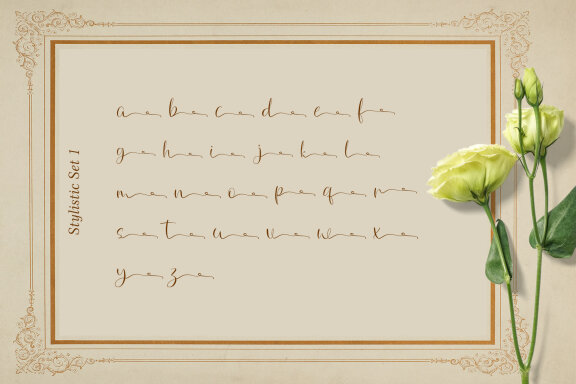 Stylistic Set 1
a b c d e f
g h i j k l
m n o p q r
s t u v w x
y z